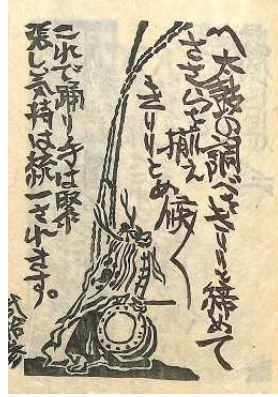 〽太鼓の調べをきりりと締めて
さゝらを揃え
きりりとめ候
これで踊り子は緊
張し気持は統一されます。